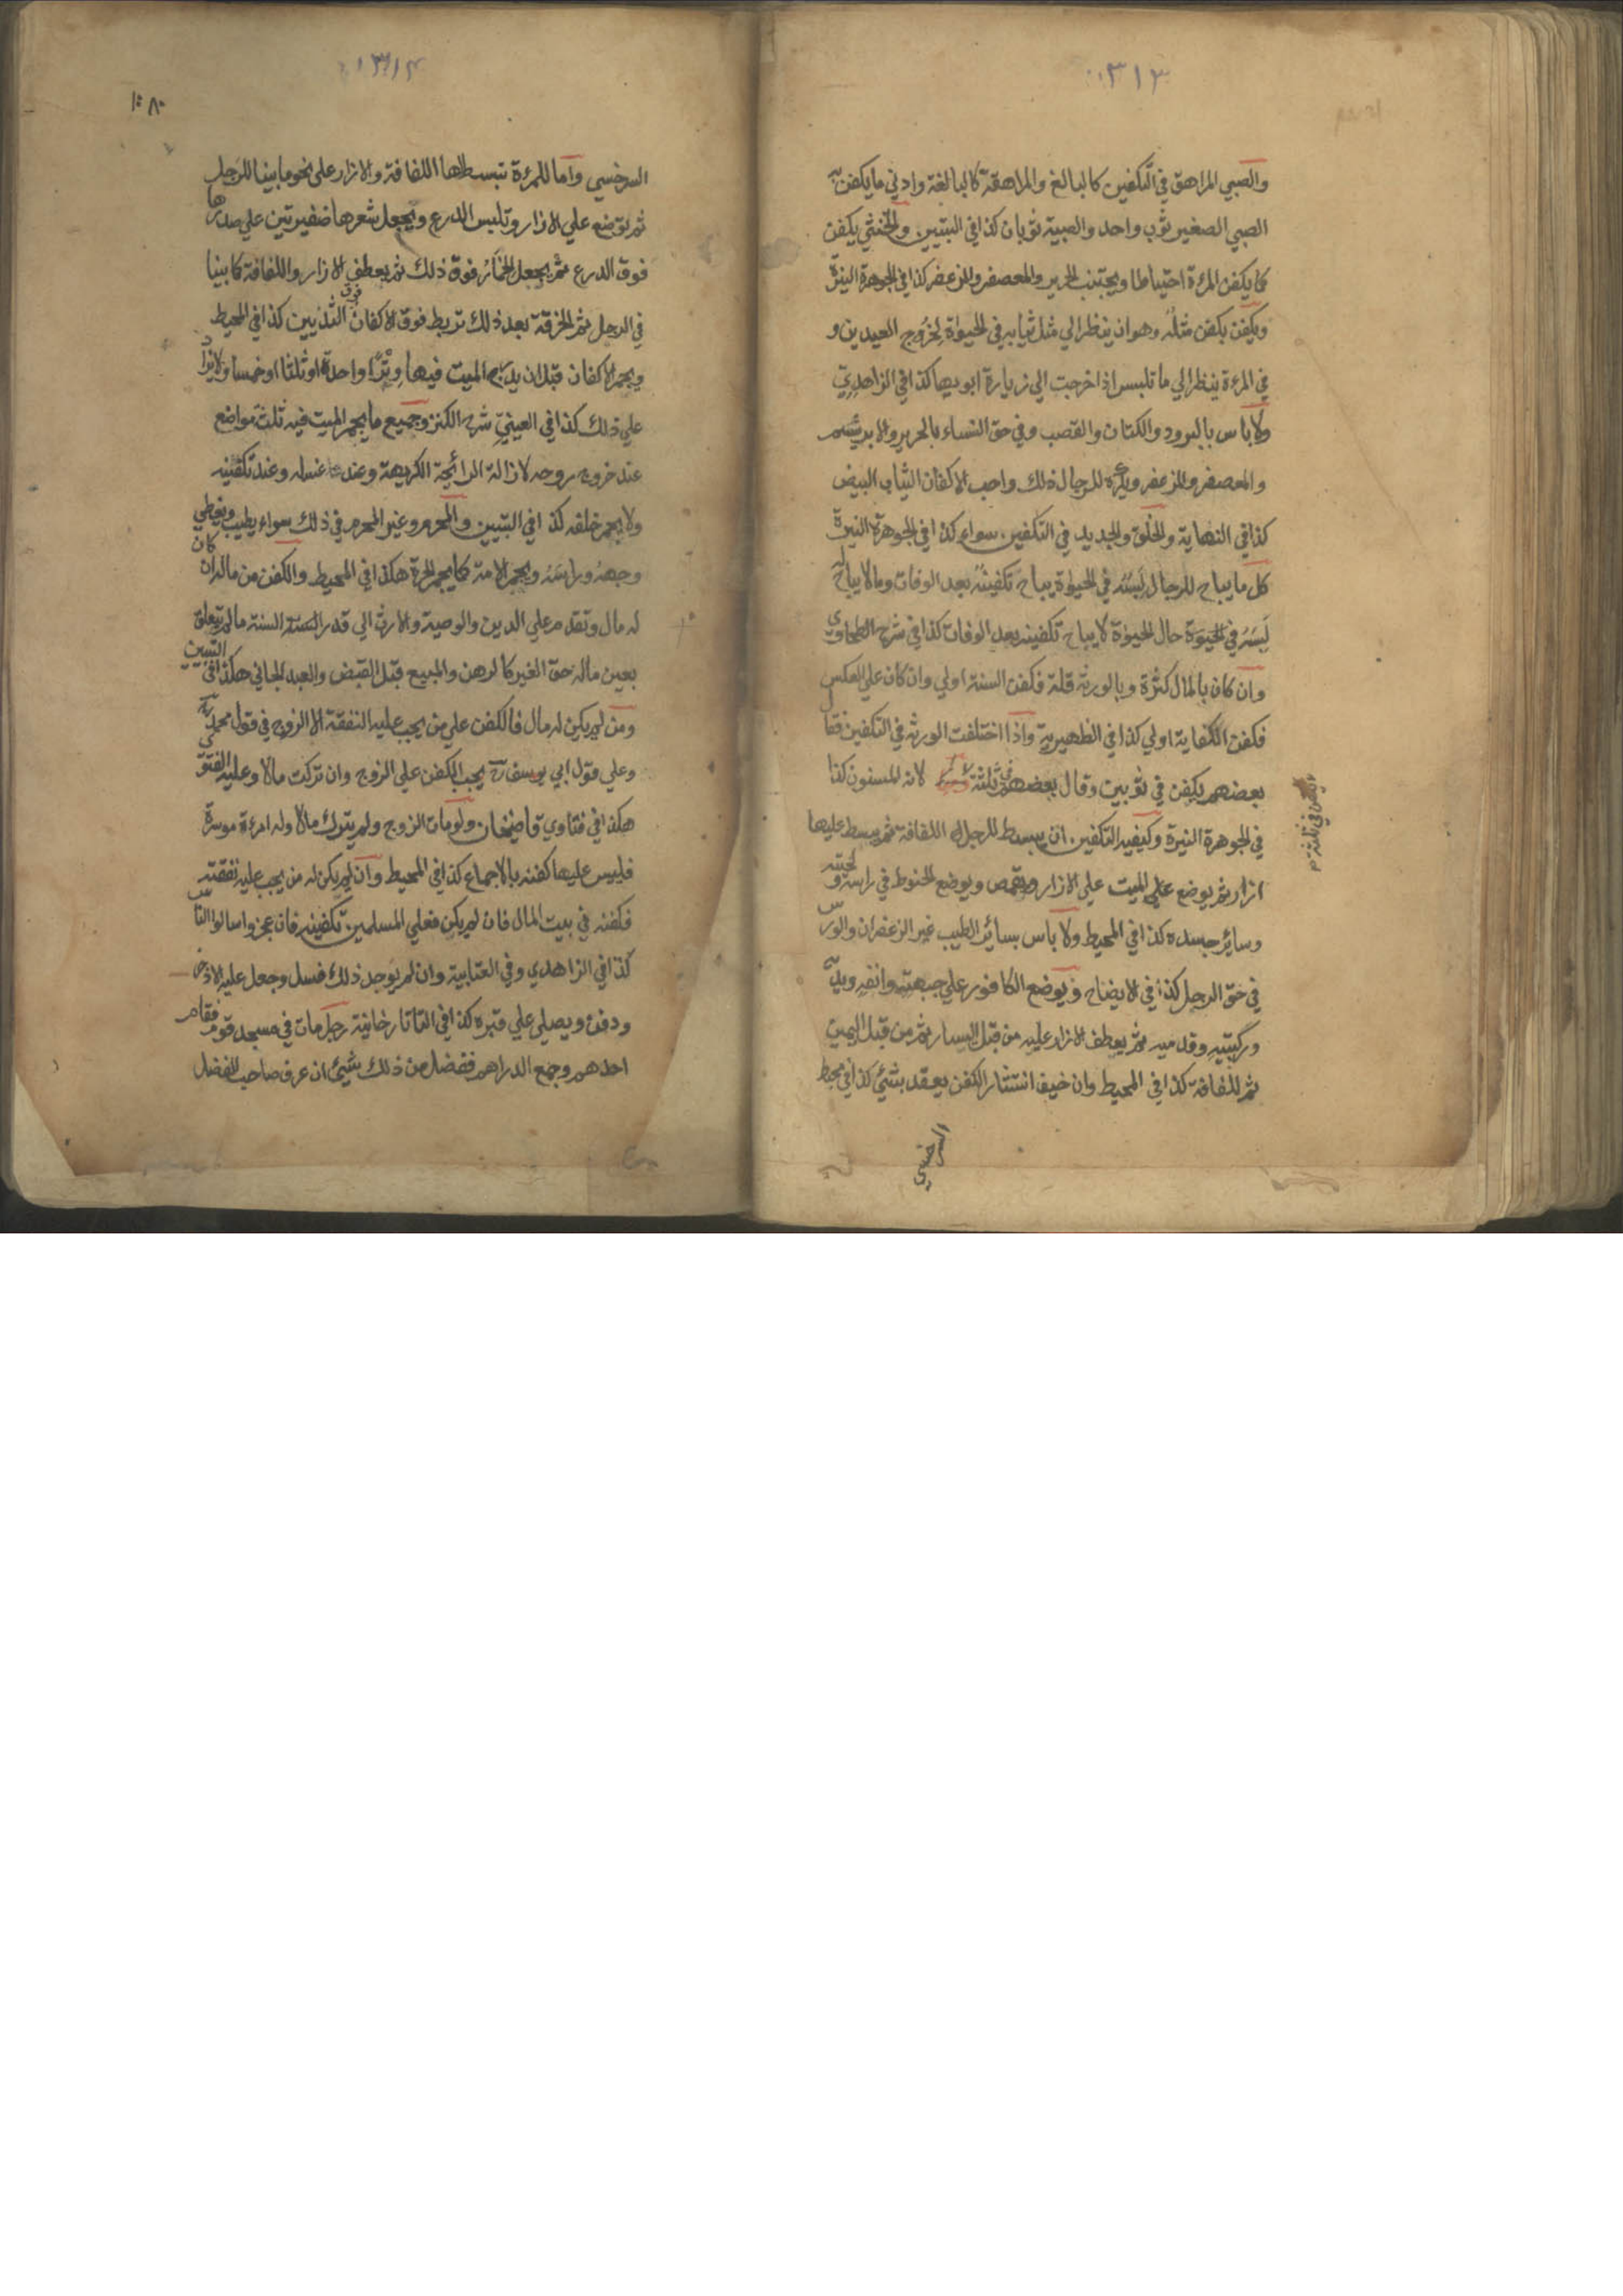 ٣١٣
والصبي المراهق في التكفين كالبالغ والمراهقة كالبالغة وادني ما يكفن به
الصبي الصغير ثوب واحد والصبية ثوبان كذا في التبيين والخنثي يكفن
كما يكفن المرءة احتياطا ويجتنب الحرير والمعصفر والمزعفر كذا في الجوهرة النيرة
ويكفن بكفن مثله وهو ان ينظر الي مثل ثيابه في الحيوة لخروج العيدين و
في المرءة ينظر الي ما تلبس اذا خرجت الي زيارة ابويها كذا في الزاهدي
ولا باس بالبرود والكتان والقصب وفي حق النساء بالحرير والابريشم
والمعصفر والمزعفر ويكره للرجال ذلك واحب الاكفان الثياب البيض
كذا في النهاية والخلق والجديد في التكفين سواء كذا في الجوهرة النيرة
كل ما يباح للرجال لبسه في الحيوة يباح تكفينه بعد الوفات وما لا يباح له
لبسه في الحيوة حال الحيوة لا يباح تكفينه بعد الوفات كذا في شرح الطحاوي
وان كان بالمال كثرة وبالورثة قلة فكفن السنة اولي وان كان علي العكس
فكفن الكفاية اولي كذا في الظهيرية واذا اختلفت الورثة في التكفين فقال
بعضهم يكفن في ثوبين وقال بعضهم في ثلثة لانه المسنون كذا
في الجوهرة النيرة وكيفية التكفين ان يبسط للرجل اللفافة ثم يبسط عليها
ازار ثم يوضع علي الميت علي الازار ويقمص ويوضع الحنوط في راسه ولحيته
وسائر جسده كذا في المحيط ولا باس بسائر الطيب غير الزعفران والورس
في حق الرجل كذا في الايضاح ويوضع الكافور علي جبهته وانفه ويديه
وركبتيه وقدميه ثم يعطف الازار عليه من قبل اليسار ثم من قبل اليمين
ثم اللفافة كذا في المحيط وان خيف انتشار الكفن يعقد بشئ كذا في محيط
السرخسي
يكفن في ثلثة
٣١٤
١٨٠
السرخسي واما للمرءة تبسط لها اللفافة والازار علي نحو ما بينا للرجل
ثم توضع علي الازار وتلبس الدرع ويجعل شعرها ضفيرتين علي صدرها
فوق الدرع ثم يجعل الخمار فوق ذلك ثم يعطف الازار واللفافة كما بينا
في الرجل ثم الخرقة بعد ذلك تربط فوق الاكفان فوق الثديين كذا في المحيط
ويجمر الاكفان قبل ان يدرج الميت فيها وترا واحدة او ثلثا او خمسا ولا يزاد
علي ذلك كذا في العيني شرح الكنز وجميع ما يجمر الميت فيه ثلث مواضع
عند خروج روحه لازالة الرائحة الكريهة وعند غسله وعند تكفينه
ولا يجمر خلفه كذا في التبيين والمحرم وغير المحرم في ذلك سواء يطيب ويغطي
وجهه وراسه ويجمر الامة كما يجمر الحرة هكذا في المحيط والكفن من ماله ان كان
له مال وتقدم علي الدين والوصية والارث الي قدر السنة ما لم يتعلق
بعين ماله حق الغير كالرهن والمبيع قبل القبض والعبد الجاني هكذا في التبيين
ومن لم يكن له مال فالكفن علي من يجب عليه النفقة الا الزوج في قول محمد رح
وعلي قول ابي يوسف رح يجب الكفن علي الزوج وان تركت مالا وعليه الفتوي
هكذا في فتاوي قاضيخان ولو مات الزوج ولم يترك مالا وله امرءة موسرة
فليس عليها كفنه بالاجماع كذا في المحيط وان لم يكن له من يجب عليه نفقته
فكفنه في بيت المال فان لم يكن فعلي المسلمين تكفينه فان عجزوا سالوا الناس
كذا في الزاهدي وفي العتابية وان لم يوجد ذلك غسل وجعل عليه الاذخر
ودفن ويصلي علي قبره كذا في التاتارخانية رجل مات في مسجد قوم فقام
احدهم وجمع الدراهم ففضل من ذلك شيئ ان عرف صاحب الفضل